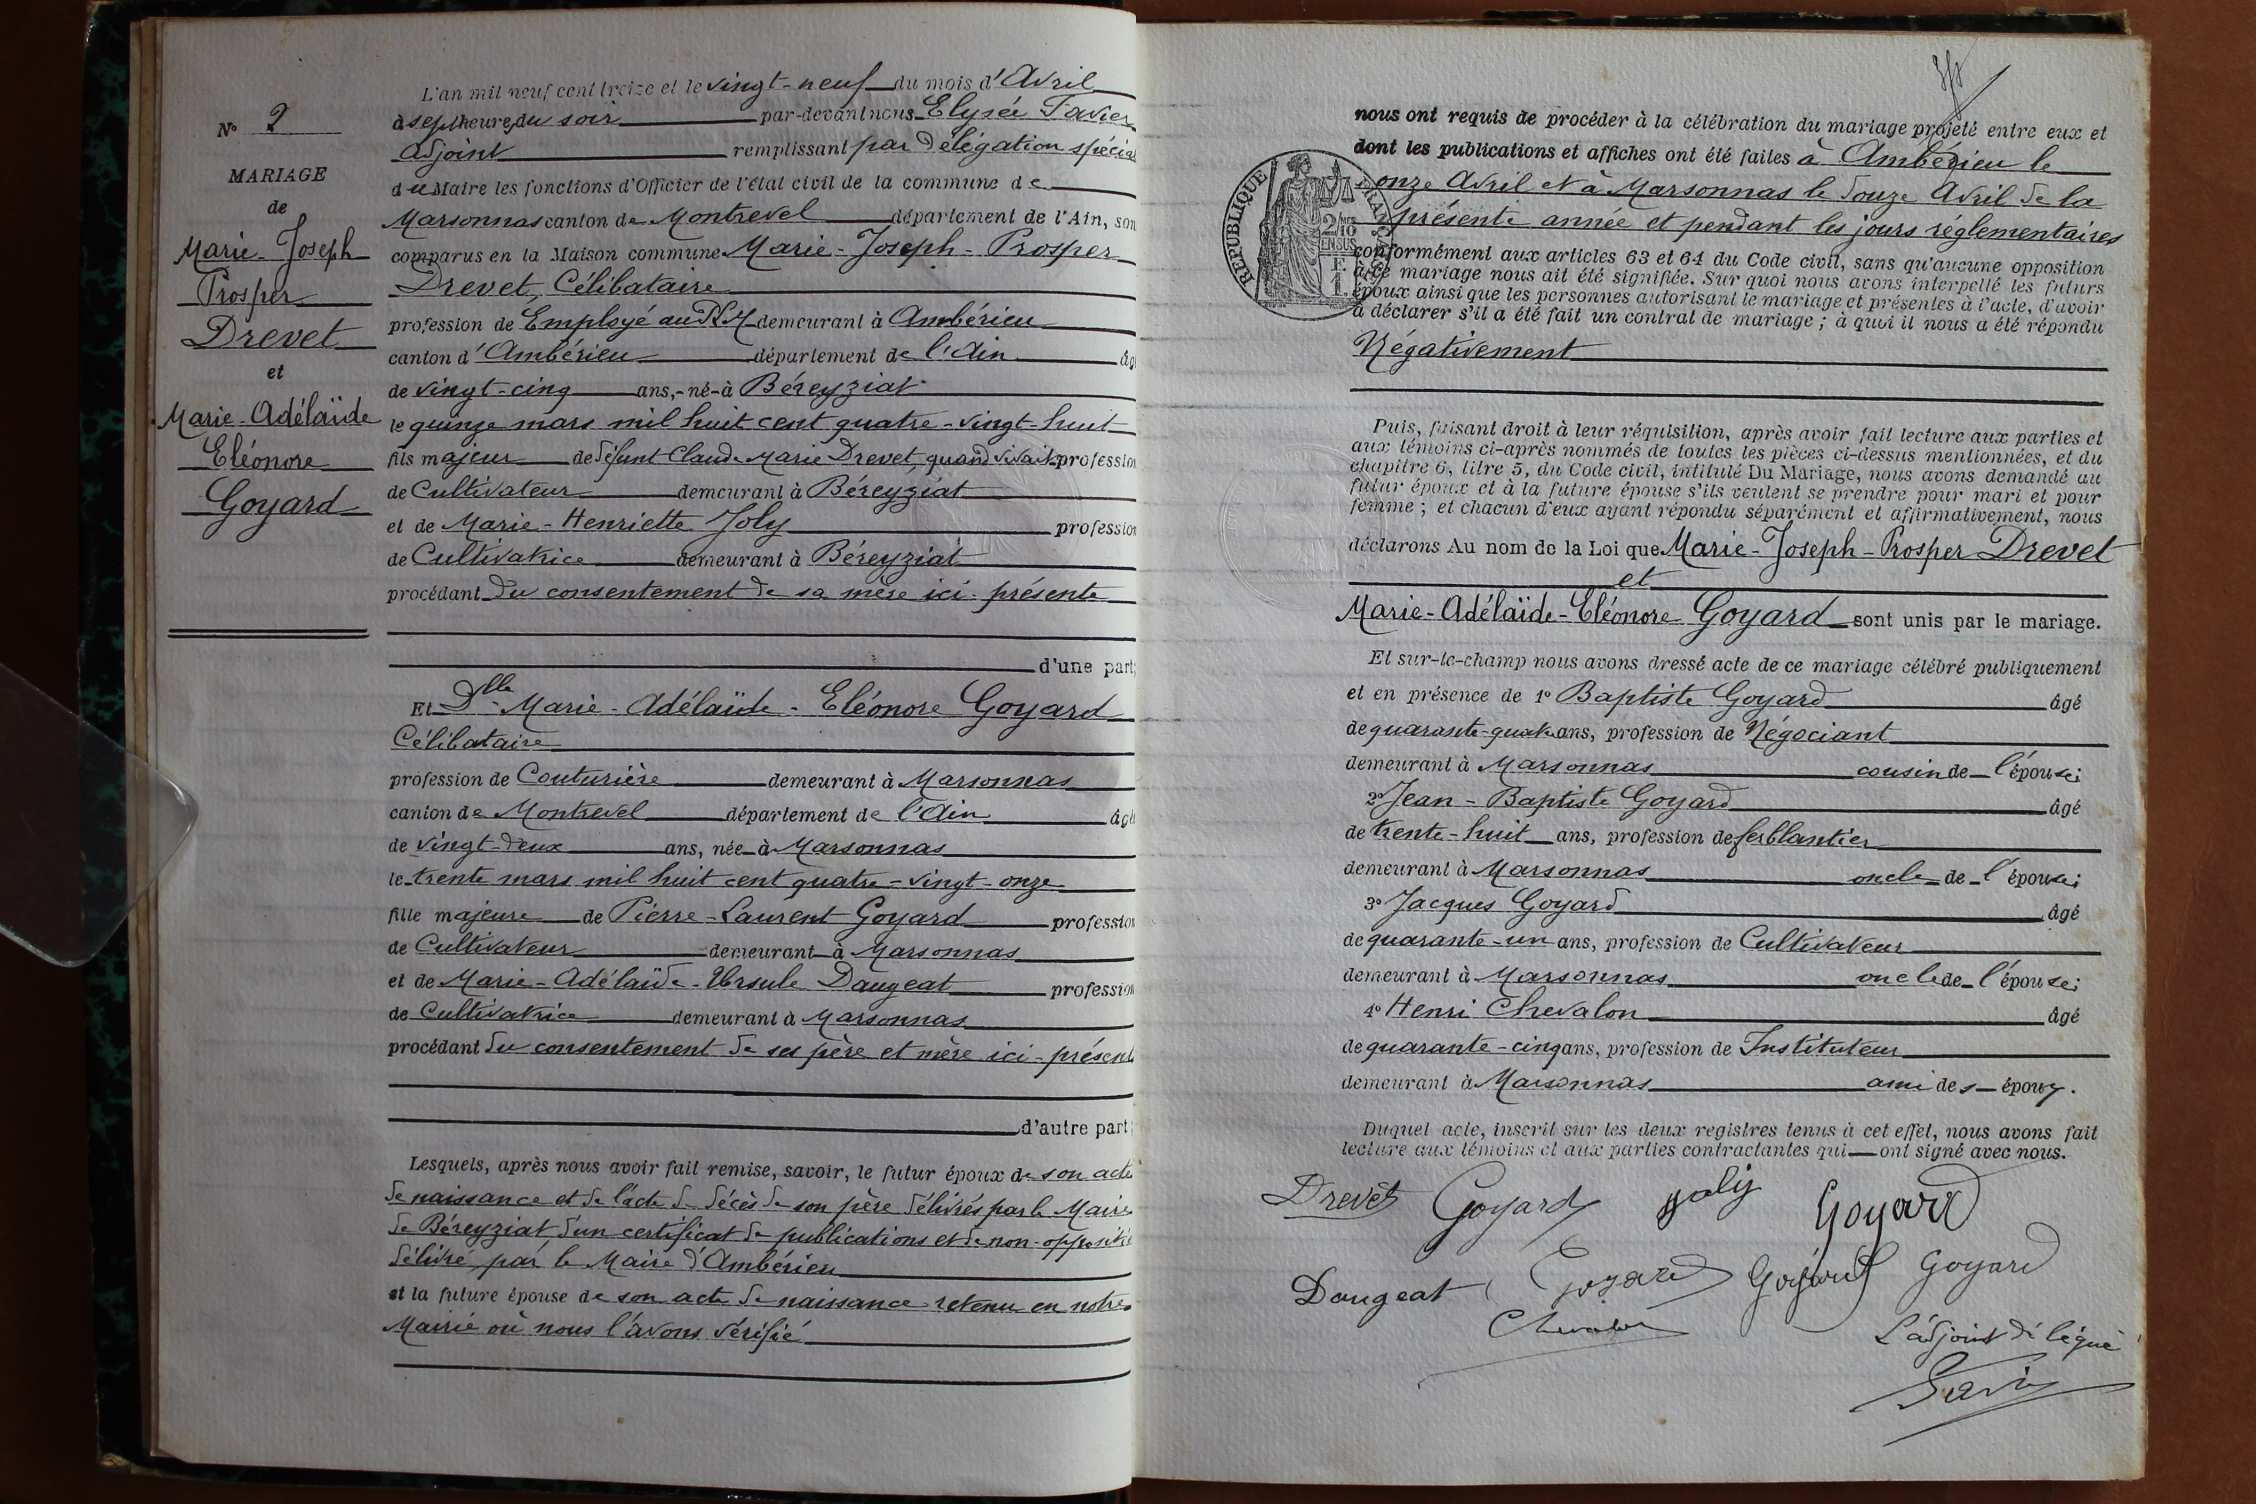 N° 2
MARIAGE
de
Marie-Joseph
Prosper
Drevet
et
Marie-Adélaïde
Eléonore
Goyard
L'an mil neuf cent treize et le vingt-neuf du mois d'Avril
à sept heures du soir par-devant nous Elysée Favier
Adjoint remplissant par délégation spécia
du Maire les fonctions d'Officier de l'état civil de la commune de
Marsonnas canton de Montrevel département de l'Ain, son
comparus en la Maison commune Marie-Joseph-Prosper
Drevet, Célibataire
profession de Employé au demeurant à Ambérieu
canton d'Ambérieu département de l'Ain âg
de vingt-cinq ans, né à Béreyziat
le quinze mars mil huit cent quatre-vingt-huit
fils majeur de défunt Claude Marie Drevet, quand vivait profession
de Cultivateur demeurant à Béreyziat
et de Marie-Henriette Joly profession
de Cultivatrice demeurant à Béreyziat
procédant du consentement de sa mère ici-présente
d'une part;
Et Dlle Marie-Adélaïde-Eléonore Goyard
Célibataire
profession de Couturière demeurant à Marsonnas
canton de Montrevel département de l'Ain âgé
de vingt-deux ans, née à Marsonnas
le trente mars mil huit cent quatre-vingt-onze
fille majeure de Pierre-Laurent Goyard profession
de Cultivateur demeurant à Marsonnas
et de Marie-Adélaïde-Ursule Daugeat profession
de Cultivatrice demeurant à Marsonnas
procédant du consentement de ses père et mère ici-présent
d'autre part;
Lesquels, après nous avoir fait remise, savoir, le futur époux de son acte
de naissance et de l'acte de décès de son père délivrés par le Maire
de Béreyziat d'un certificat de publications et de non-opposition
délivré par le Maire d'Ambérieu
et la future épouse de son acte de naissance retenu en notre
Mairie où nous l'avons vérifié
nous ont requis de procéder à la célébration du mariage projeté entre eux et
dont les publications et affiches ont été faites à Ambérieu le
onze Avril et à Marsonnas le douze Avril de la
présente année et pendant les jours réglementaires
conformément aux articles 63 et 64 du Code civil, sans qu'aucune opposition
à ce mariage nous ait été signifiée. Sur quoi nous avons interpellé les futurs
époux ainsi que les personnes autorisant le mariage et présentes à l'acte, d'avoir
à déclarer s'il a été fait un contrat de mariage; à quoi il nous a été répondu
Négativement
REPUBLIQUE FRANÇAISE
2/10
EN SUS
1 F.
Puis, faisant droit à leur réquisition, après avoir fait lecture aux parties et
aux témoins ci-après nommés de toutes les pièces ci-dessus mentionnées, et du
chapitre 6, titre 5, du Code civil, intitulé Du Mariage, nous avons demandé au
futur époux et à la future épouse s'ils veulent se prendre pour mari et pour
femme; et chacun d'eux ayant répondu séparément et affirmativement, nous
déclarons Au nom de la Loi que Marie-Joseph-Prosper Drevet
et
Marie-Adélaïde-Eléonore Goyard sont unis par le mariage.
Et sur-le-champ nous avons dressé acte de ce mariage célébré publiquement
et en présence de 1° Baptiste Goyard âgé
de quarante-quatre ans, profession de Négociant
demeurant à Marsonnas cousin de l'épouse;
2° Jean-Baptiste Goyard âgé
de trente-huit ans, profession de ferblantier
demeurant à Marsonnas oncle de l'épouse;
3° Jacques Goyard âgé
de quarante-un ans, profession de Cultivateur
demeurant à Marsonnas oncle de l'épouse;
4° Henri Chevalon âgé
de quarante-cinq ans, profession de Instituteur
demeurant à Marsonnas ami des époux.
Duquel acte, inscrit sur les deux registres tenus à cet effet, nous avons fait
lecture aux témoins et aux parties contractantes qui ont signé avec nous.
Drevet Goyard Joly Goyard
Daugeat Goyard Goyard Goyard
Chevalon L'adjoint délégué
Favier